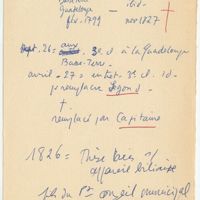 Guadeloupe — ibid.
fév. 1799 nov 1827 †
Sept. 26 = aux 3e cl. à la Guadeloupe
Basse-Terre
avril - 27 = intert. 3e cl. id.
remplacer Segond
†
remplacé par Capitaine
1826 = Thèse Paris s/
appareil biliaire
fils du 1er conseil municipal